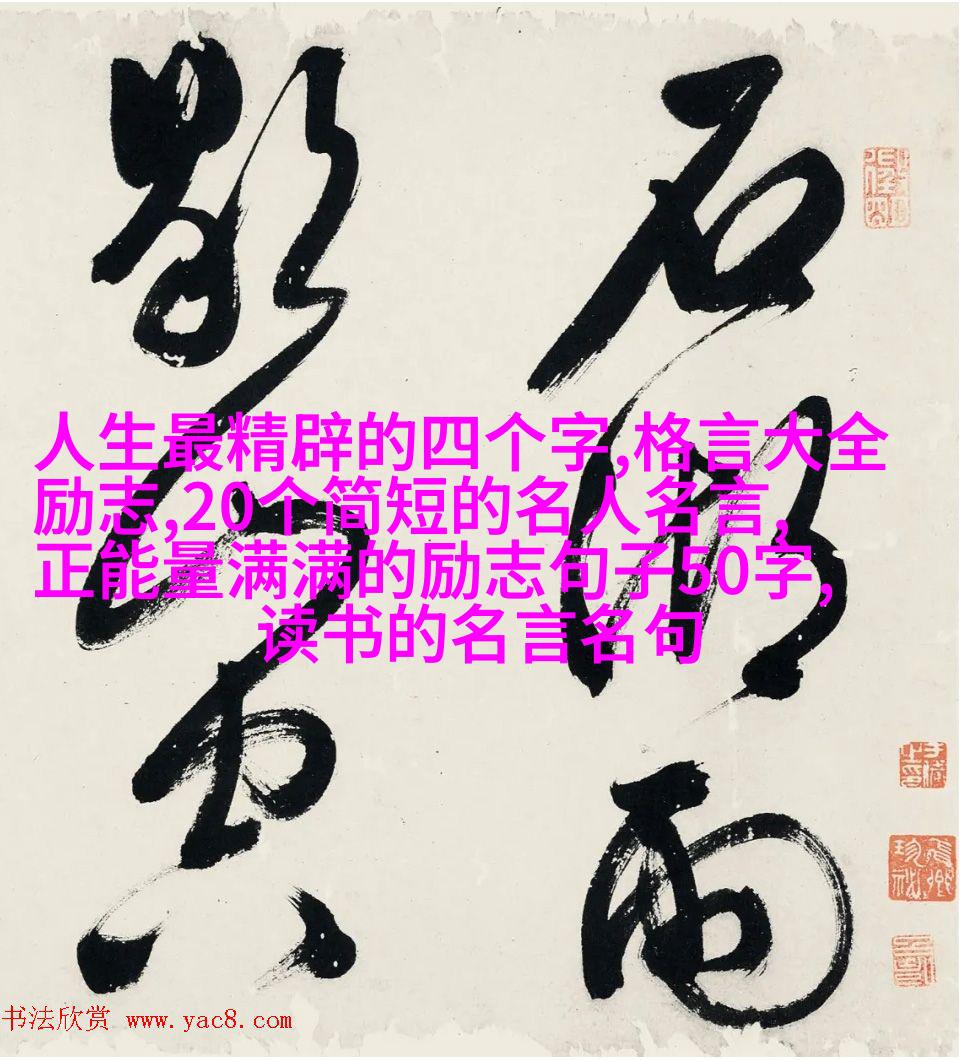 石湖雨
歇山空
人生最精辟的四个字,格言大全
励志,20个简短的名人名言,
正能量满满的励志句子50字,
读书的名言名句
书法欣赏 www.yac8.com